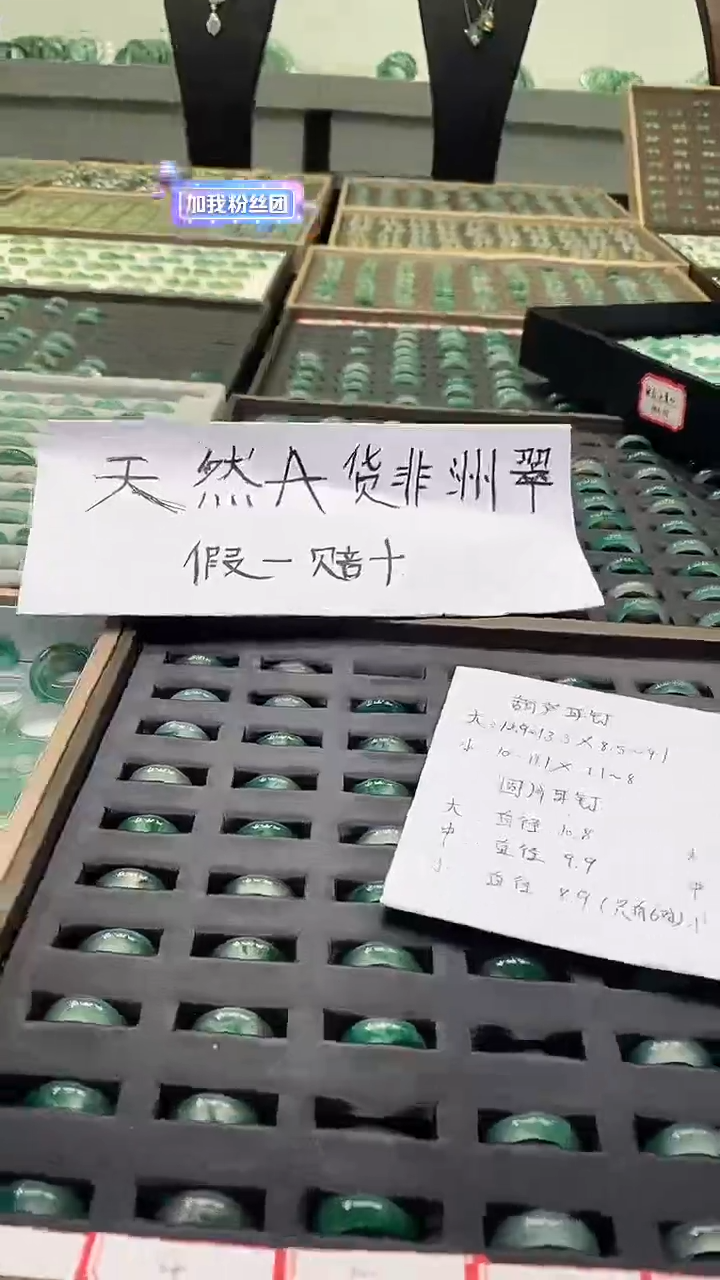 加我粉丝团
天然A货非洲翠
假一赔十
葫芦耳钉
大:12.9~13.3×8.5~9.1
小 10~11.1×7.1~8
圆形耳钉
大 直径 10.8
中 直径 9.9
小 直径 8.9(只有6对)
大
中
小